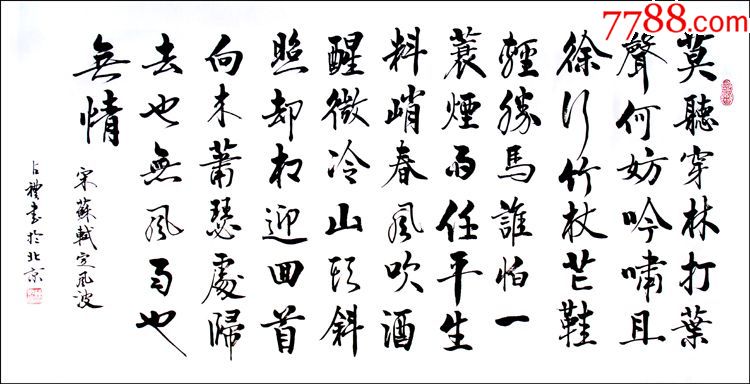 7788.com
莫聽穿林打葉
聲何妨吟嘯且
徐行竹杖芒鞋
輕勝馬誰怕一
蓑煙雨任平生
料峭春風吹酒
醒微冷山頭斜
照却相迎回首
向來蕭瑟處歸
去也無風雨也
無情
宋蘇軾定風波
占禮書於北京